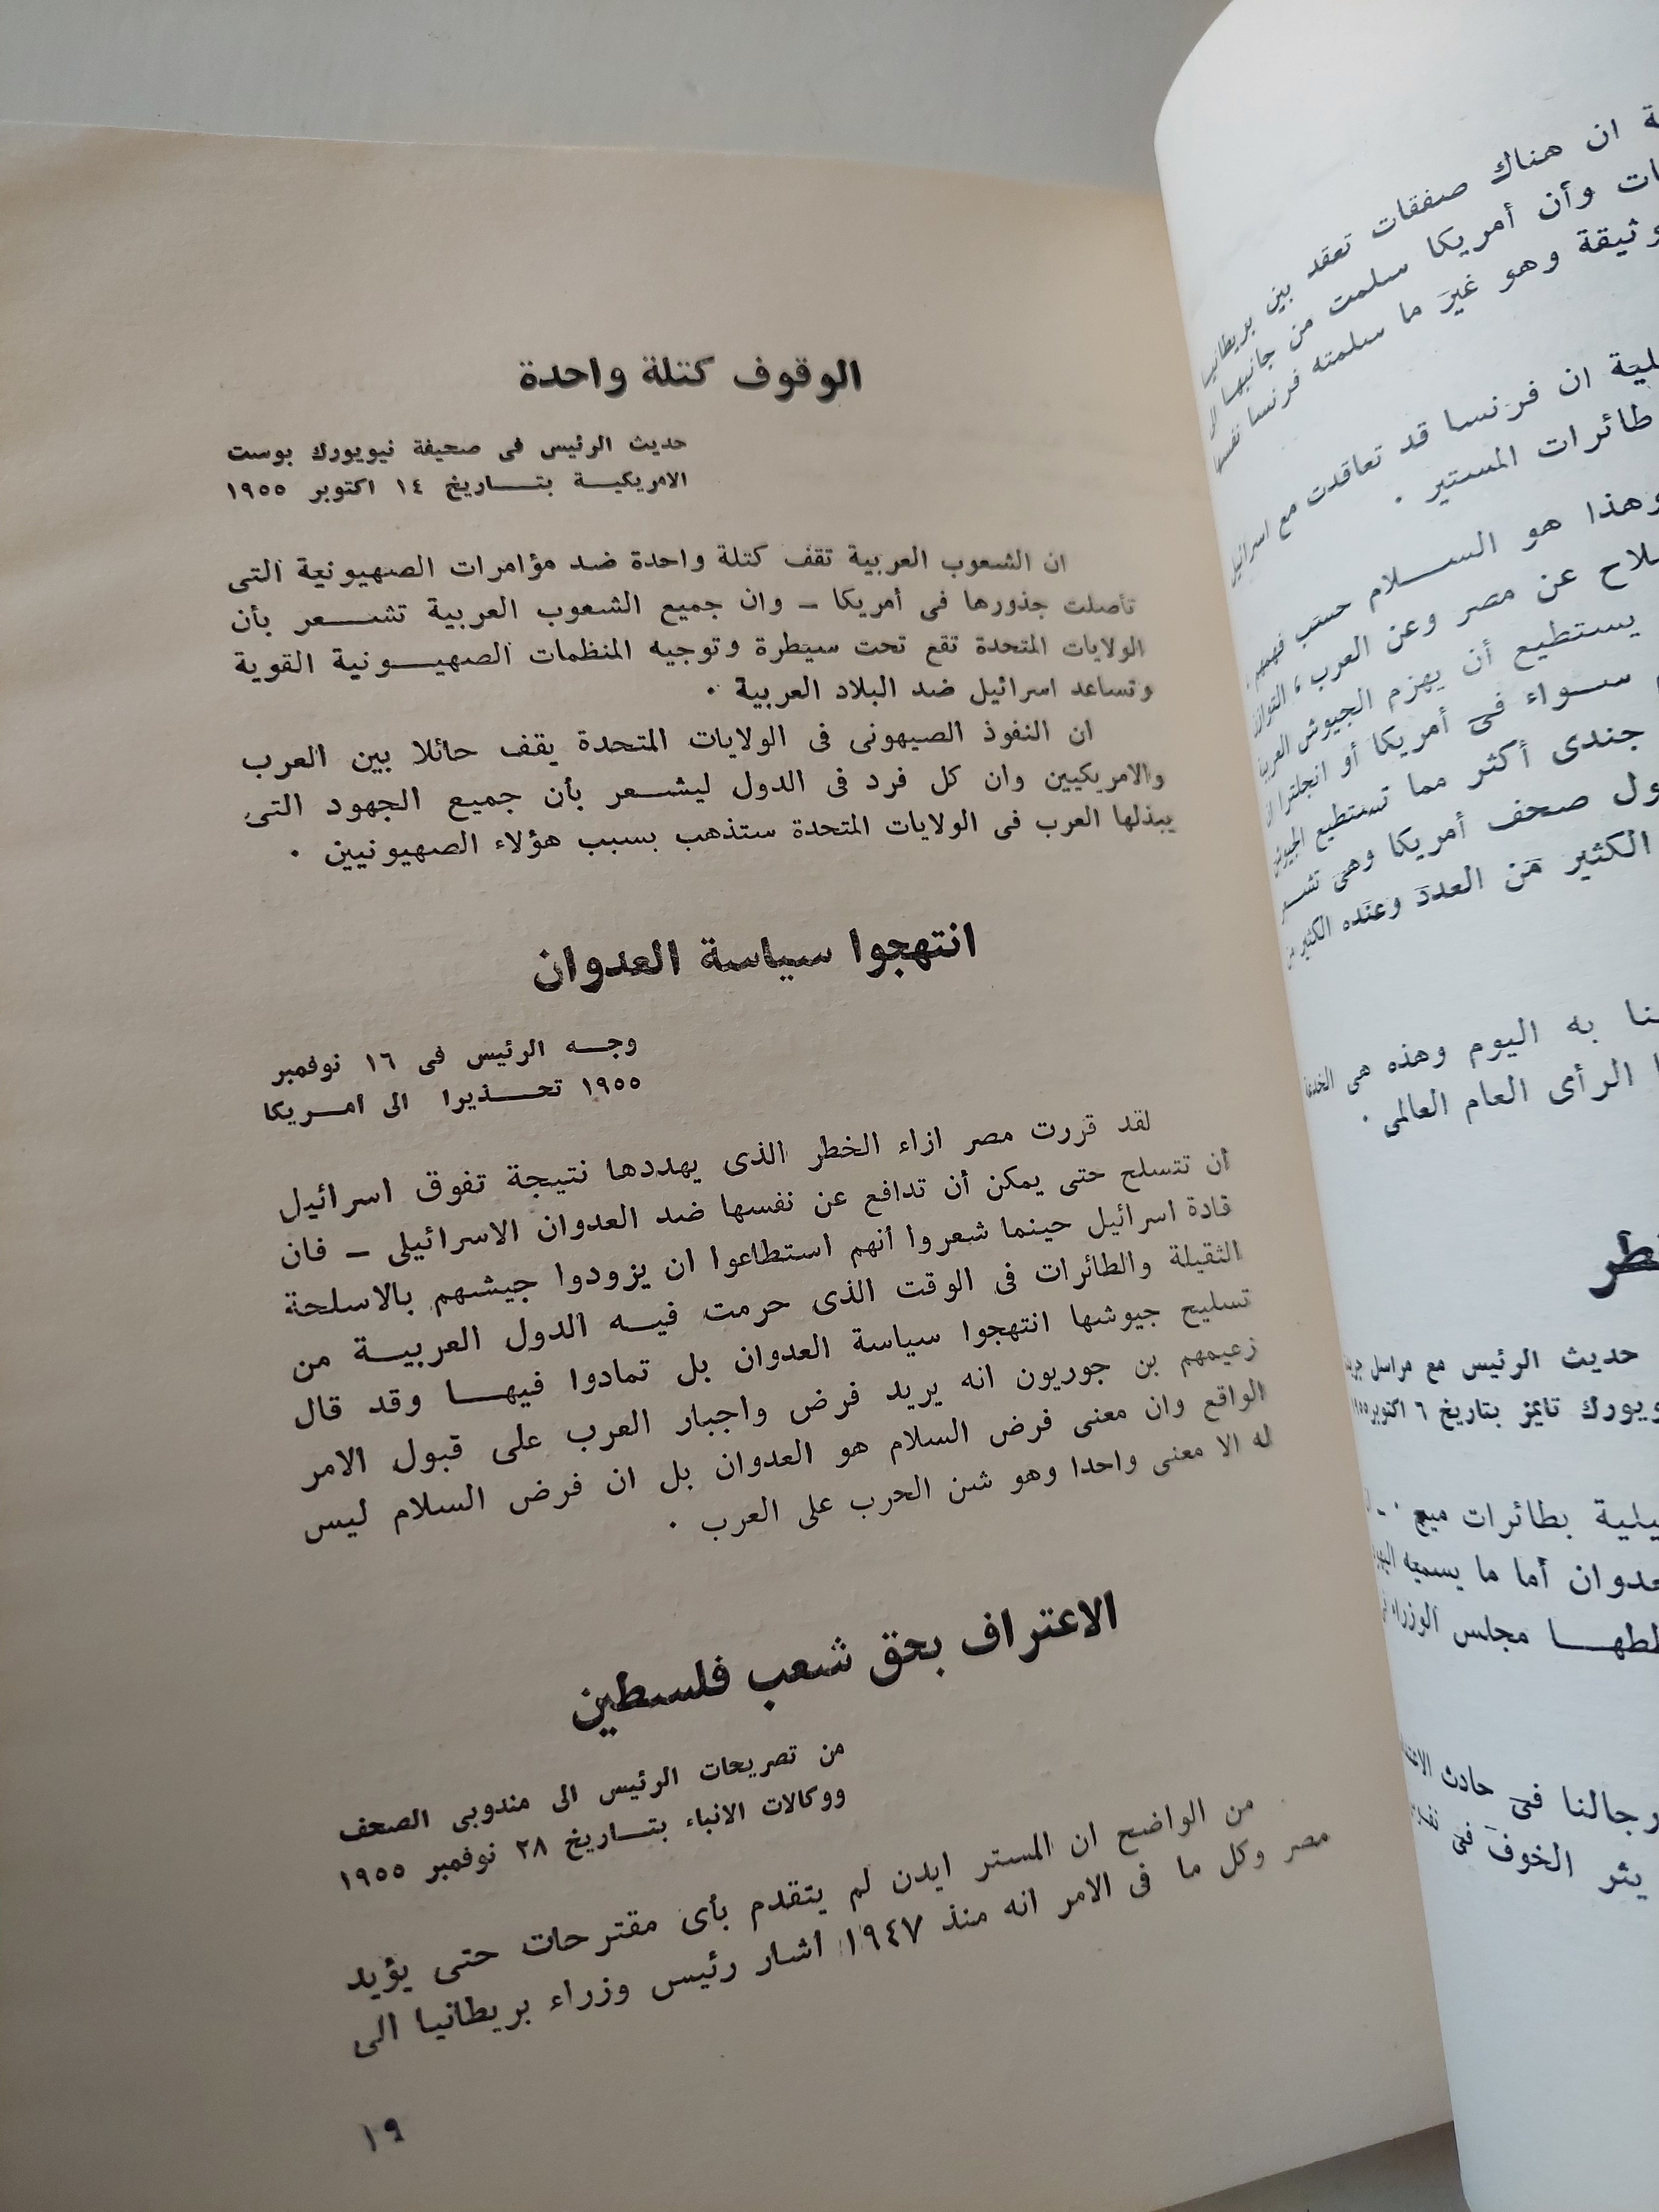 الوقوف كتلة واحدة
حديث الرئيس فى صحيفة نيويورك بوست
الامريكيـــة بتـــاريخ ١٤ اكتوبر ١٩٥٥
ان الشعوب العربية تقف كتلة واحدة ضد مؤامرات الصهيونية التى
تأصلت جذورها فى أمريكا – وان جميع الشعوب العربية تشـــعر بأن
الولايات المتحدة تقع تحت سيطرة وتوجيه المنظمات الصهيـــونية القوية
وتساعد اسرائيل ضد البلاد العربية ٠
ان النفوذ الصيهونى فى الولايات المتحدة يقف حائلا بين العرب
والامريكيين وان كل فرد فى الدول ليشـــعر بأن جميع الجهود التى
يبذلها العرب فى الولايات المتحدة ستذهب بسبب هؤلاء الصهيونيين ٠
انتهجوا سياسة العدوان
وجـــه الرئيس فى ١٦ نوفمبر
١٩٥٥ تحـــذيرا الى امـــريكا
لقد قررت مصر ازاء الخطر الذى يهددها نتيجة تفوق اسرائيل
أن تتسلح حتى يمكن أن تدافع عن نفسها ضد العدوان الاسرائيلى – فان
قادة اسرائيل حينما شعروا أنهم استطاعوا ان يزودوا جيشهم بالاسلحة
الثقيلة والطائرات فى الوقت الذى حرمت فيـــه الدول العربيـــة من
تسليح جيوشها انتهجوا سياسة العدوان بل تمادوا فيهـــا وقد قال
زعيمهم بن جوريون انه يريد فرض واجبار العرب على قبول الامر
الواقع وان معنى فرض السلام هو العدوان بل ان فرض السلام ليس
له الا معنى واحدا وهو شن الحرب على العرب ٠
الاعتراف بحق شعب فلسطين
من تصريحات الرئيس الى مندوبى الصحف
ووكالات الانباء بتـــاريخ ٢٨ نوفمبر ١٩٥٥
من الواضح ان المستر ايدن لم يتقدم بأى مقترحات حتى يؤيد
مصر وكل ما فى الامر انه منذ ١٩٤٧ اشار رئيس وزراء بريطانيا الى
١٩
ان هناك صفقات تعقد بين بريطانيا
وأن أمريكا سلمت من جانبها
وهو غير ما سلمته فرنسا نفسها
ان فرنسا قد تعاقدت مع اسرائيل
طائرات المستير ٠
وهذا هو الســـلام حسب فهمهم
عن مصر وعن العرب ،
يستطيع أن يهزم الجيوش
ســـواء فى أمريكا أو انجلترا
جندى أكثر مما تستطيع
صحف أمريكا وهى
الكثير من العدد وعنده الكثير من
به اليوم وهذه هى
الرأى العام العالمى ٠
حديث الرئيس مع مراسل
تايمز بتاريخ ٦ اكتوبر
بطائرات ميج ٠
أما ما يسميه
مجلس الوزراء
رجالنا فى حادث
يثر الخوف فى